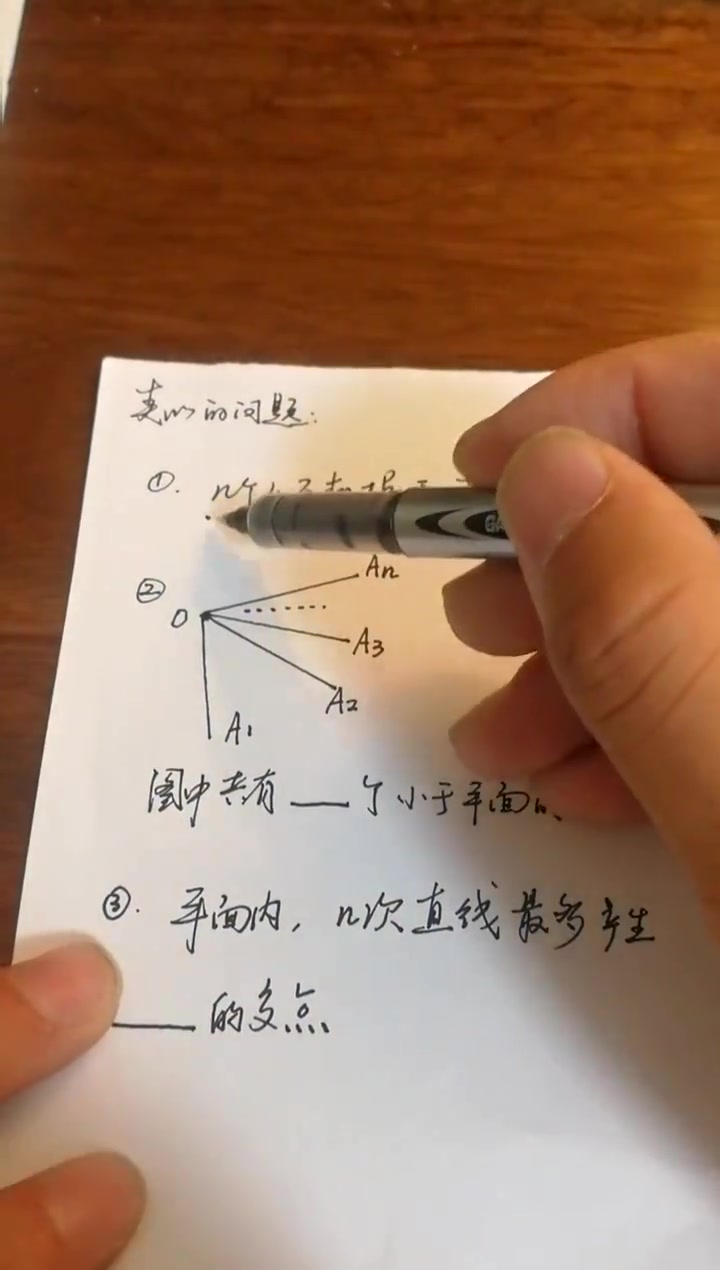 类似的问题:
①. n个人互相握手
②
O
An
A3
A2
A1
图中共有 ___ 个小于平面
③. 平面内, n次直线最多产生
___ 的交点